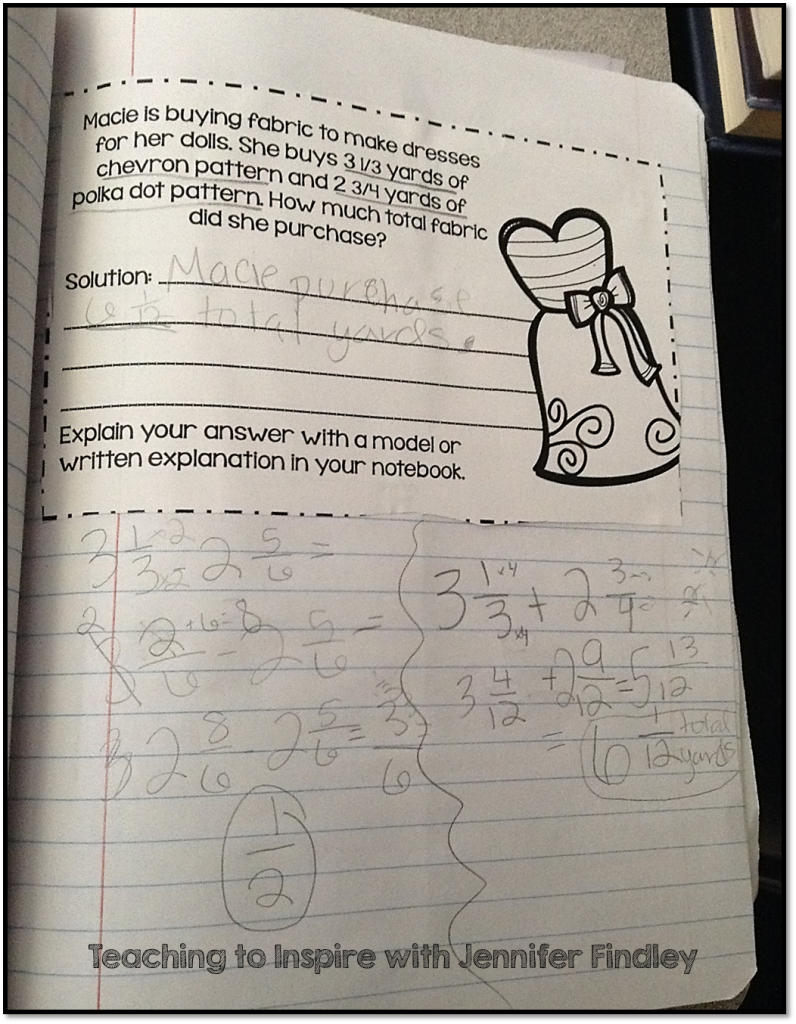 Macie is buying fabric to make dresses
for her dolls. She buys 3 1/3 yards of
chevron pattern and 2 3/4 yards of
polka dot pattern. How much total fabric
did she purchase?
Solution: Macie purchase
6 1/12 total yards.
Explain your answer with a model or
written explanation in your notebook.
3 1/3 ×2 2 5/6 =
×2
2 3 2/6 +6=8 - 2 5/6 =
3 2 8/6 - 2 5/6 = 3/6
1/2
3 1/3 ×4 + 2 3/4
×4
3 4/12 + 2 9/12 = 5 13/12
= 6 1/12 total yards
Teaching to Inspire with Jennifer Findley